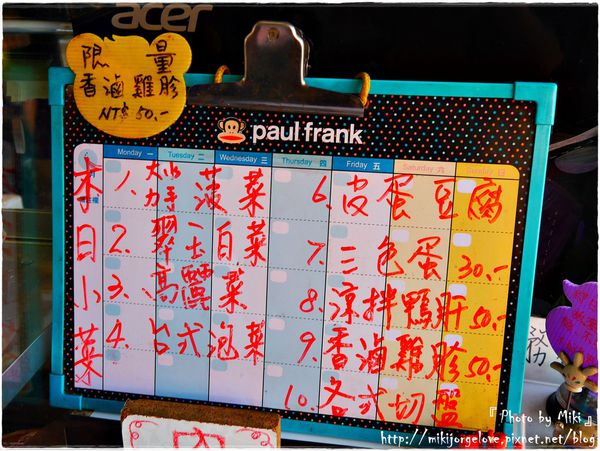 acer
限量
香滷雞胗
NT$50.-
paul frank
Monday 一
Tuesday 二
Wednesday 三
Thursday 四
Friday 五
Saturday 六
Sunday 日
本日小菜
1. 菠菜
2. 翠玉白菜
3. 高麗菜
4. 台式泡菜
6. 皮蛋豆腐
7. 三色蛋 30.-
8. 涼拌鴨肝 50.-
9. 香滷雞胗 50.-
10. 各式切盤
務
『 Photo by Miki 』
http://mikijorgelove.pixnet.net/blog